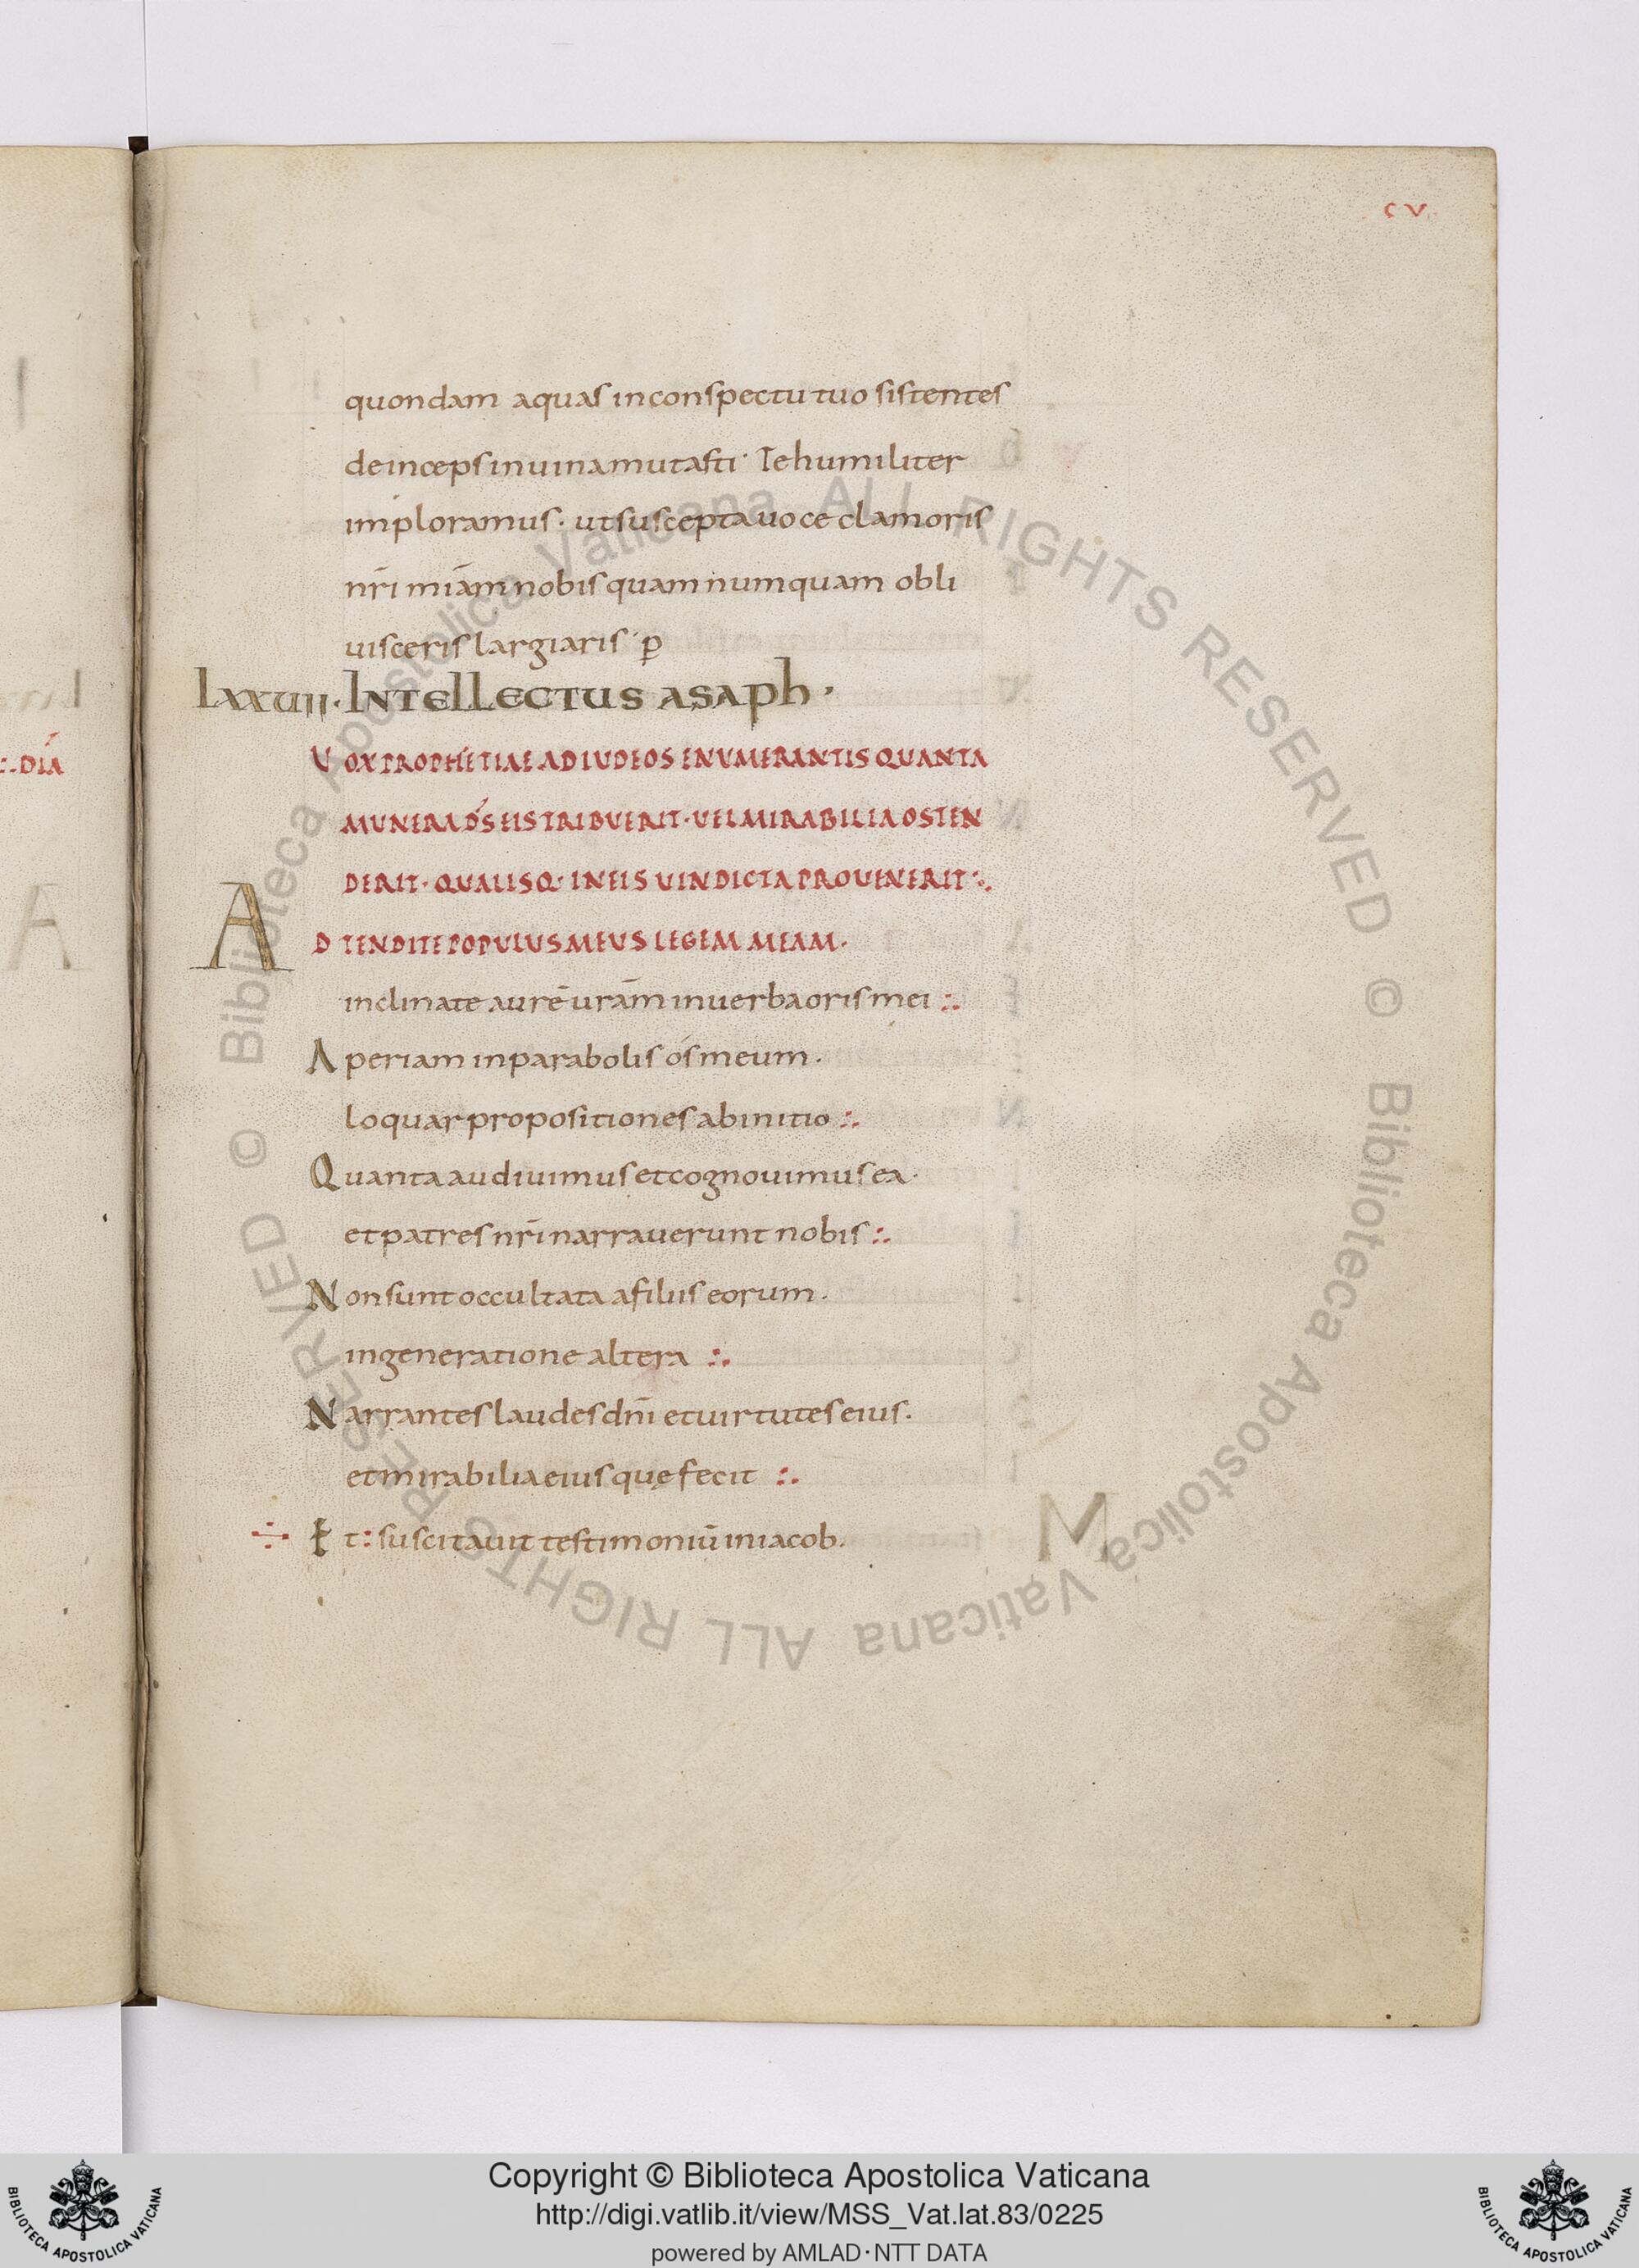 cv
quondam aquas inconspectu tuo sistentes
deinceps inuinamutasti· Te humiliter
imploramus· ut suscepta uoce clamoris
nr̄i miām nobis quam numquam obli
uisceris largiaris· p̱
:·DIĀ
LXXUII· INTELLECTUS ASAPH·
VOX PROPHETIAE AD IUDEOS ENUMERANTIS QUANTA
MUNERA DS̄ EIS TRIBUERIT· UEL MIRABILIA OSTEN
DERIT· QUALISQ· IN EIS UINDICTA PROUENERIT:·
AD TENDITE POPULUS MEUS LEGEM MEAM·
inclinate aurē urām inuerba oris mei :·
Aperiam inparabolis ós meum·
loquar propositiones abinitio :·
Quanta audiuimus et cognouimus ea·
et patres nr̄i narrauerunt nobis :·
Non sunt occultata afiliis eorum·
ingeneratione altera :·
Narrantes laudes dn̄i et uirtutes eius·
et mirabilia eius quę fecit :·
÷ Et: suscitauit testimoniū iniacob·
© Biblioteca Apostolica Vaticana ALL RIGHTS RESERVED © Biblioteca Apostolica Vaticana ALL RIGHTS RESERVED
Copyright © Biblioteca Apostolica Vaticana
http://digi.vatlib.it/view/MSS_Vat.lat.83/0225
powered by AMLAD·NTT DATA
BIBLIOTECA APOSTOLICA VATICANA
BIBLIOTECA APOSTOLICA VATICANA